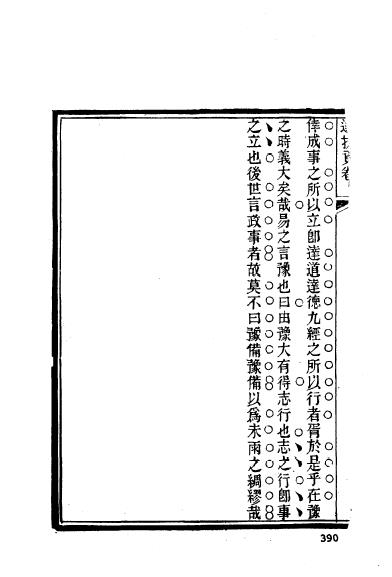 倖成事之所以立卽達道達德九經之所以行者胥於是乎在豫
之時義大矣哉易之言豫也曰由豫大有得志行也志之行卽事
之立也後世言政事者故莫不曰豫備豫備以爲未雨之綢繆哉
390